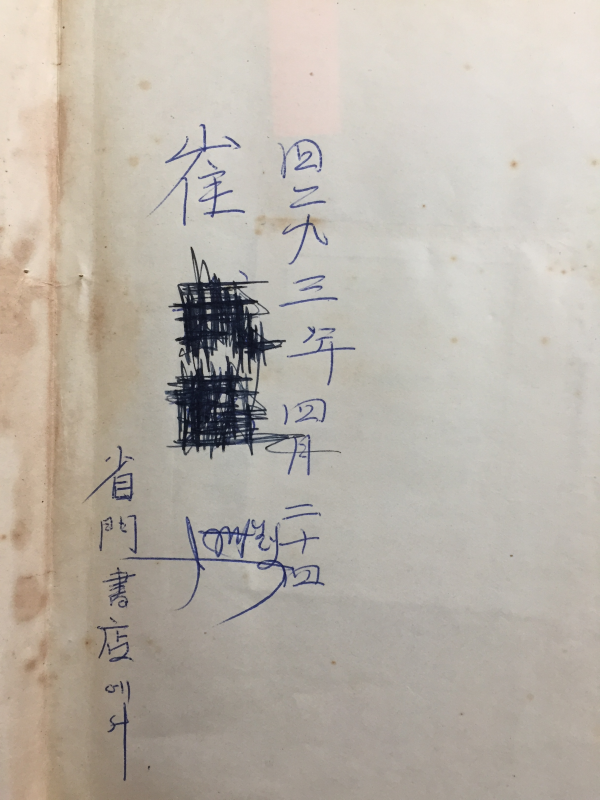 四二九三年四月二十四
崔
省門書店에서